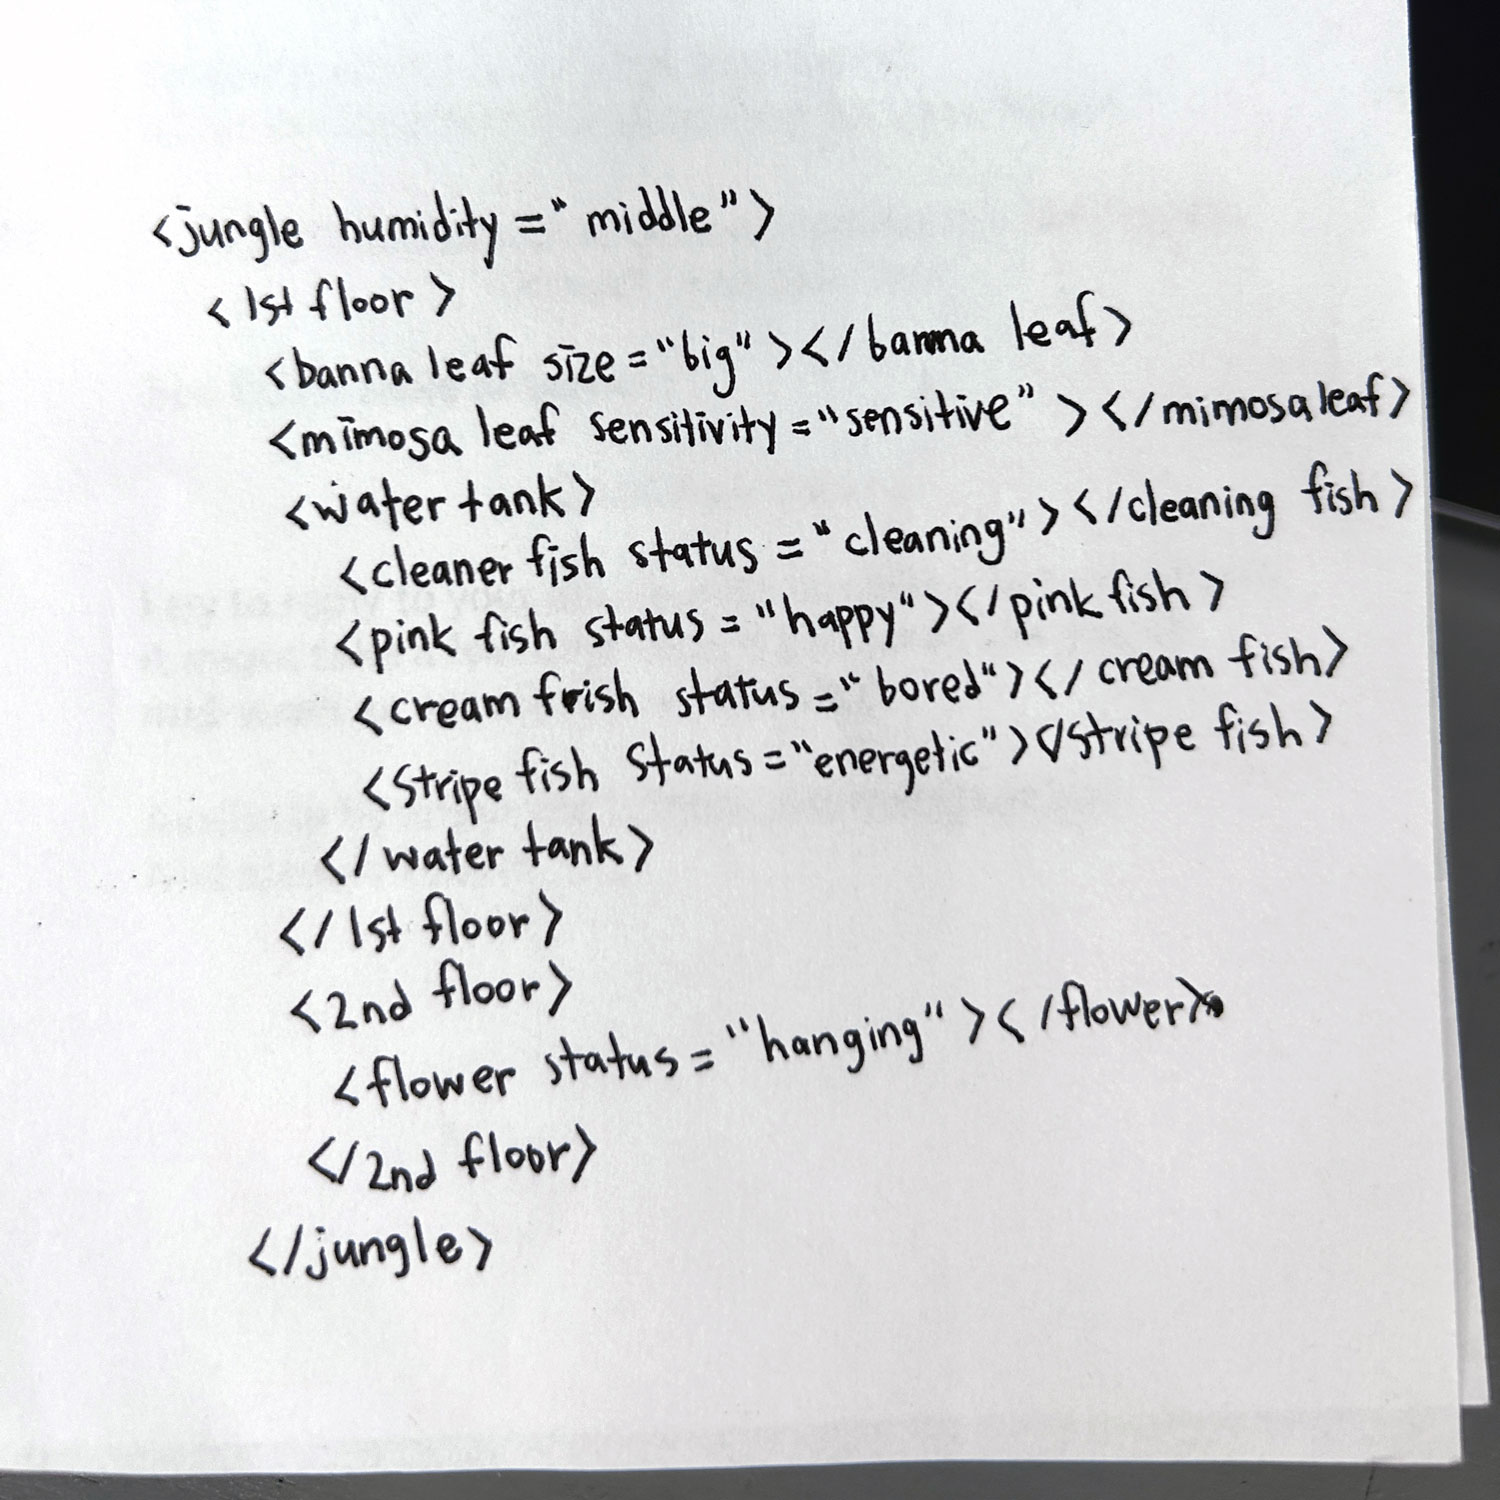 <jungle humidity="middle">
<1st floor>
<banna leaf size="big"></banna leaf>
<mimosa leaf sensitivity="sensitive"></mimosa leaf>
<water tank>
<cleaner fish status="cleaning"></cleaning fish>
<pink fish status="happy"></pink fish>
<cream frish status="bored"></cream fish>
<stripe fish status="energetic"></stripe fish>
</water tank>
</1st floor>
<2nd floor>
<flower status="hanging"></flower>
</2nd floor>
</jungle>